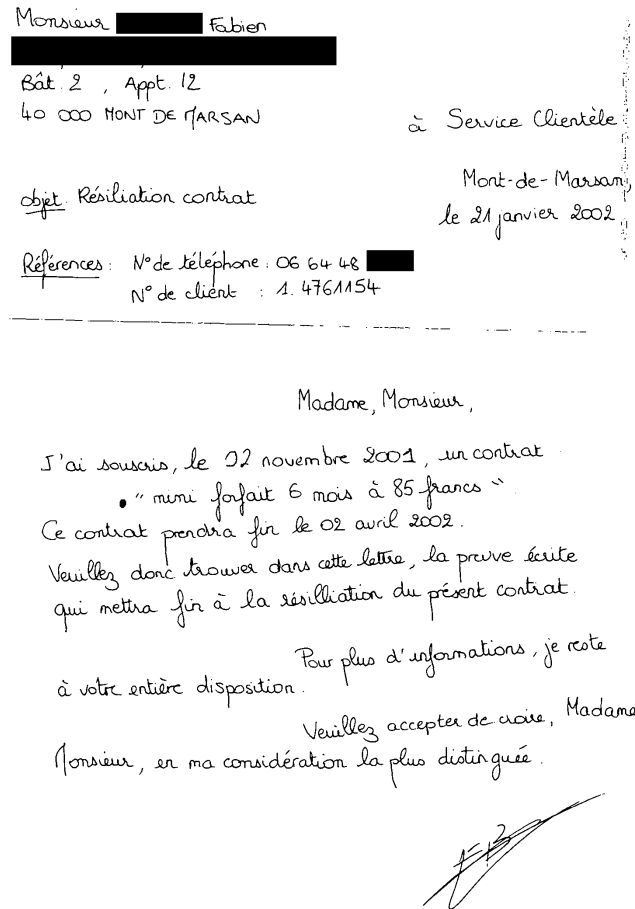 Monsieur Fabien
Bât. 2 , Appt. 12
40 000 MONT DE MARSAN
à Service Clientèle
Mont-de-Marsan,
le 21 janvier 2002
objet. Résiliation contrat
Références : N° de téléphone : 06 64 48
N° de client : 1. 4761154
Madame, Monsieur,
J'ai souscris, le 02 novembre 2001, un contrat
• " mini forfait 6 mois à 85 francs "
Ce contrat prendra fin le 02 avril 2002.
Veuillez donc trouver dans cette lettre, la preuve écrite
qui mettra fin à la résilliation du présent contrat.
Pour plus d'informations, je reste
à votre entière disposition.
Veuillez accepter de croire, Madame
Monsieur, en ma considération la plus distinguée.